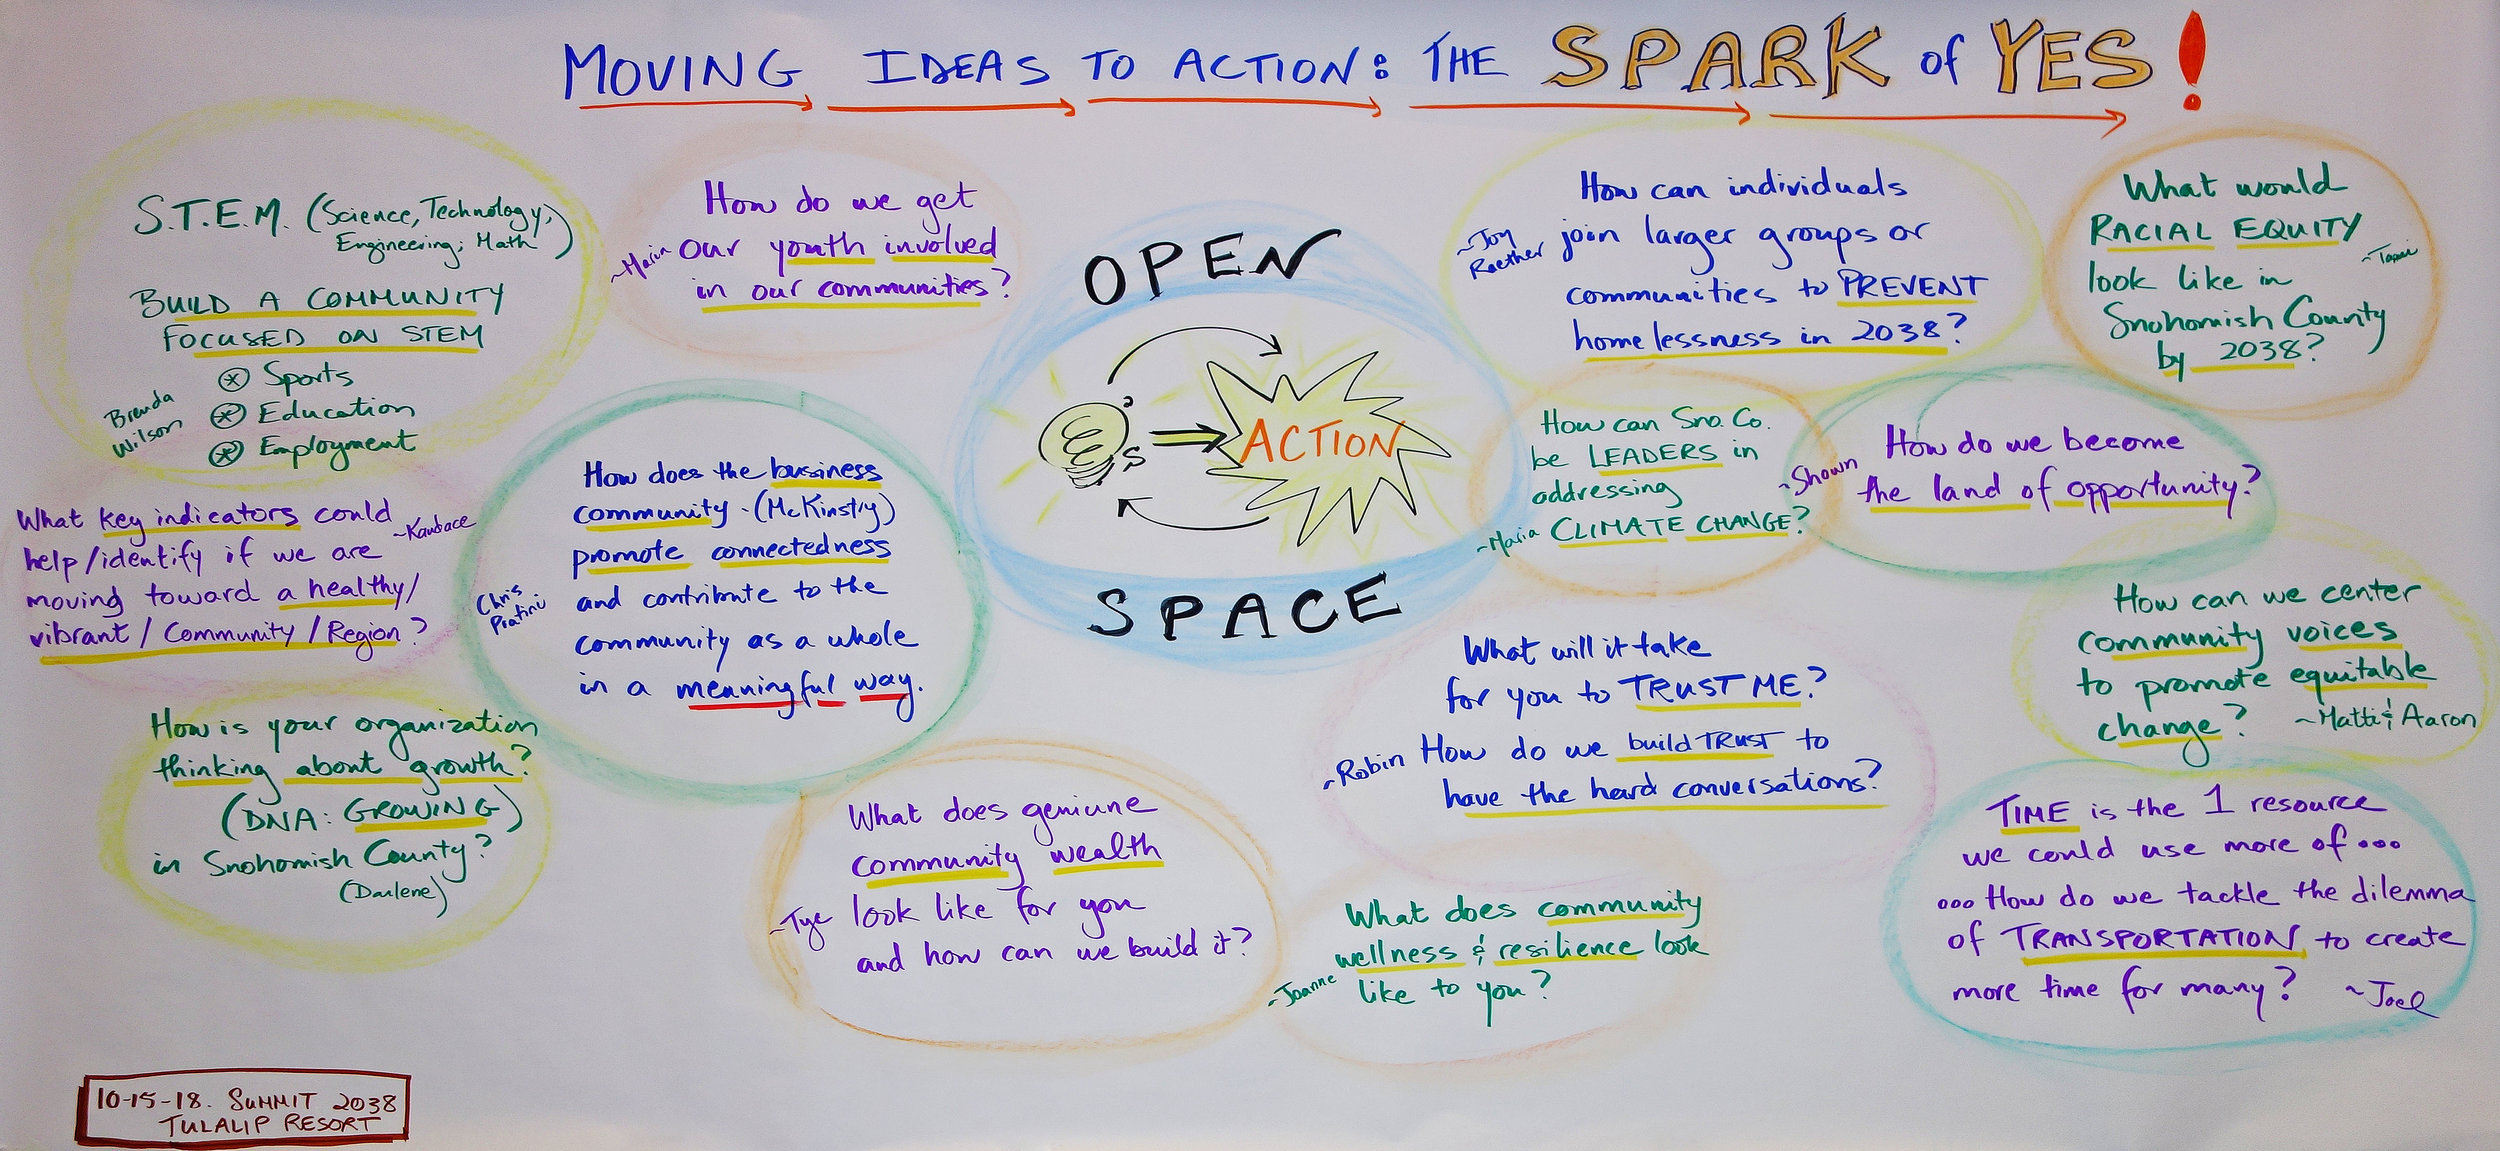 MOVING IDEAS TO ACTION: THE SPARK of YES!
S.T.E.M. (Science, Technology,
Engineering, Math)
BUILD A COMMUNITY
FOCUSED ON STEM
Sports
Education
Employment
Brenda
Wilson
How do we get
our youth involved
in our communities?
OPEN
S
ACTION
SPACE
How can individuals
join larger groups or
communities to PREVENT
homelessness in 2038?
~Joy
Raether
What would
RACIAL EQUITY
look like in
Snohomish County
by 2038?
How can Sno. Co.
be LEADERS in
addressing
CLIMATE CHANGE?
~Maria
How do we become
the land of opportunity?
~Shown
What key indicators could
help/identify if we are
moving toward a healthy/
vibrant/Community/Region?
~Kandace
How does the business
community - (McKinstry)
promote connectedness
and contribute to the
community as a whole
in a meaningful way.
Chris
Pratini
How can we center
community voices
to promote equitable
change?
~Matti & Aaron
What will it take
for you to TRUST ME?
How do we build TRUST to
have the hard conversations?
~Robin
How is your organization
thinking about growth?
(DNA: GROWING)
in Snohomish County?
(Darlene)
What does geniune
community wealth
look like for you
and how can we build it?
~Tye
What does community
wellness & resilience look
like to you?
~Joanne
TIME is the 1 resource
we could use more of...
...How do we tackle the dilemma
of TRANSPORTATION to create
more time for many?
~Joel
10-15-18. SUMMIT 2038
TULALIP RESORT